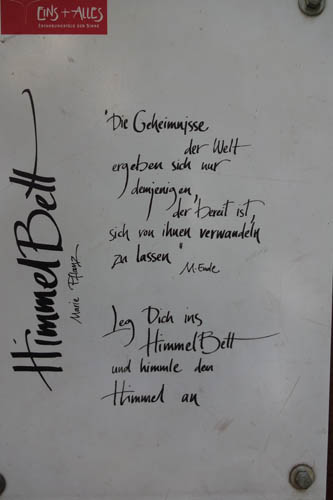 EINS + ALLES
ERFAHRUNGSFELD DER SINNE
HimmelBett
Marie Pflanz
"Die Geheimnisse
der Welt
ergeben sich nur
demjenigen,
der bereit ist,
sich von ihnen verwandeln
zu lassen"
M. Ende
Leg Dich ins
HimmelBett
und himmle den
Himmel an